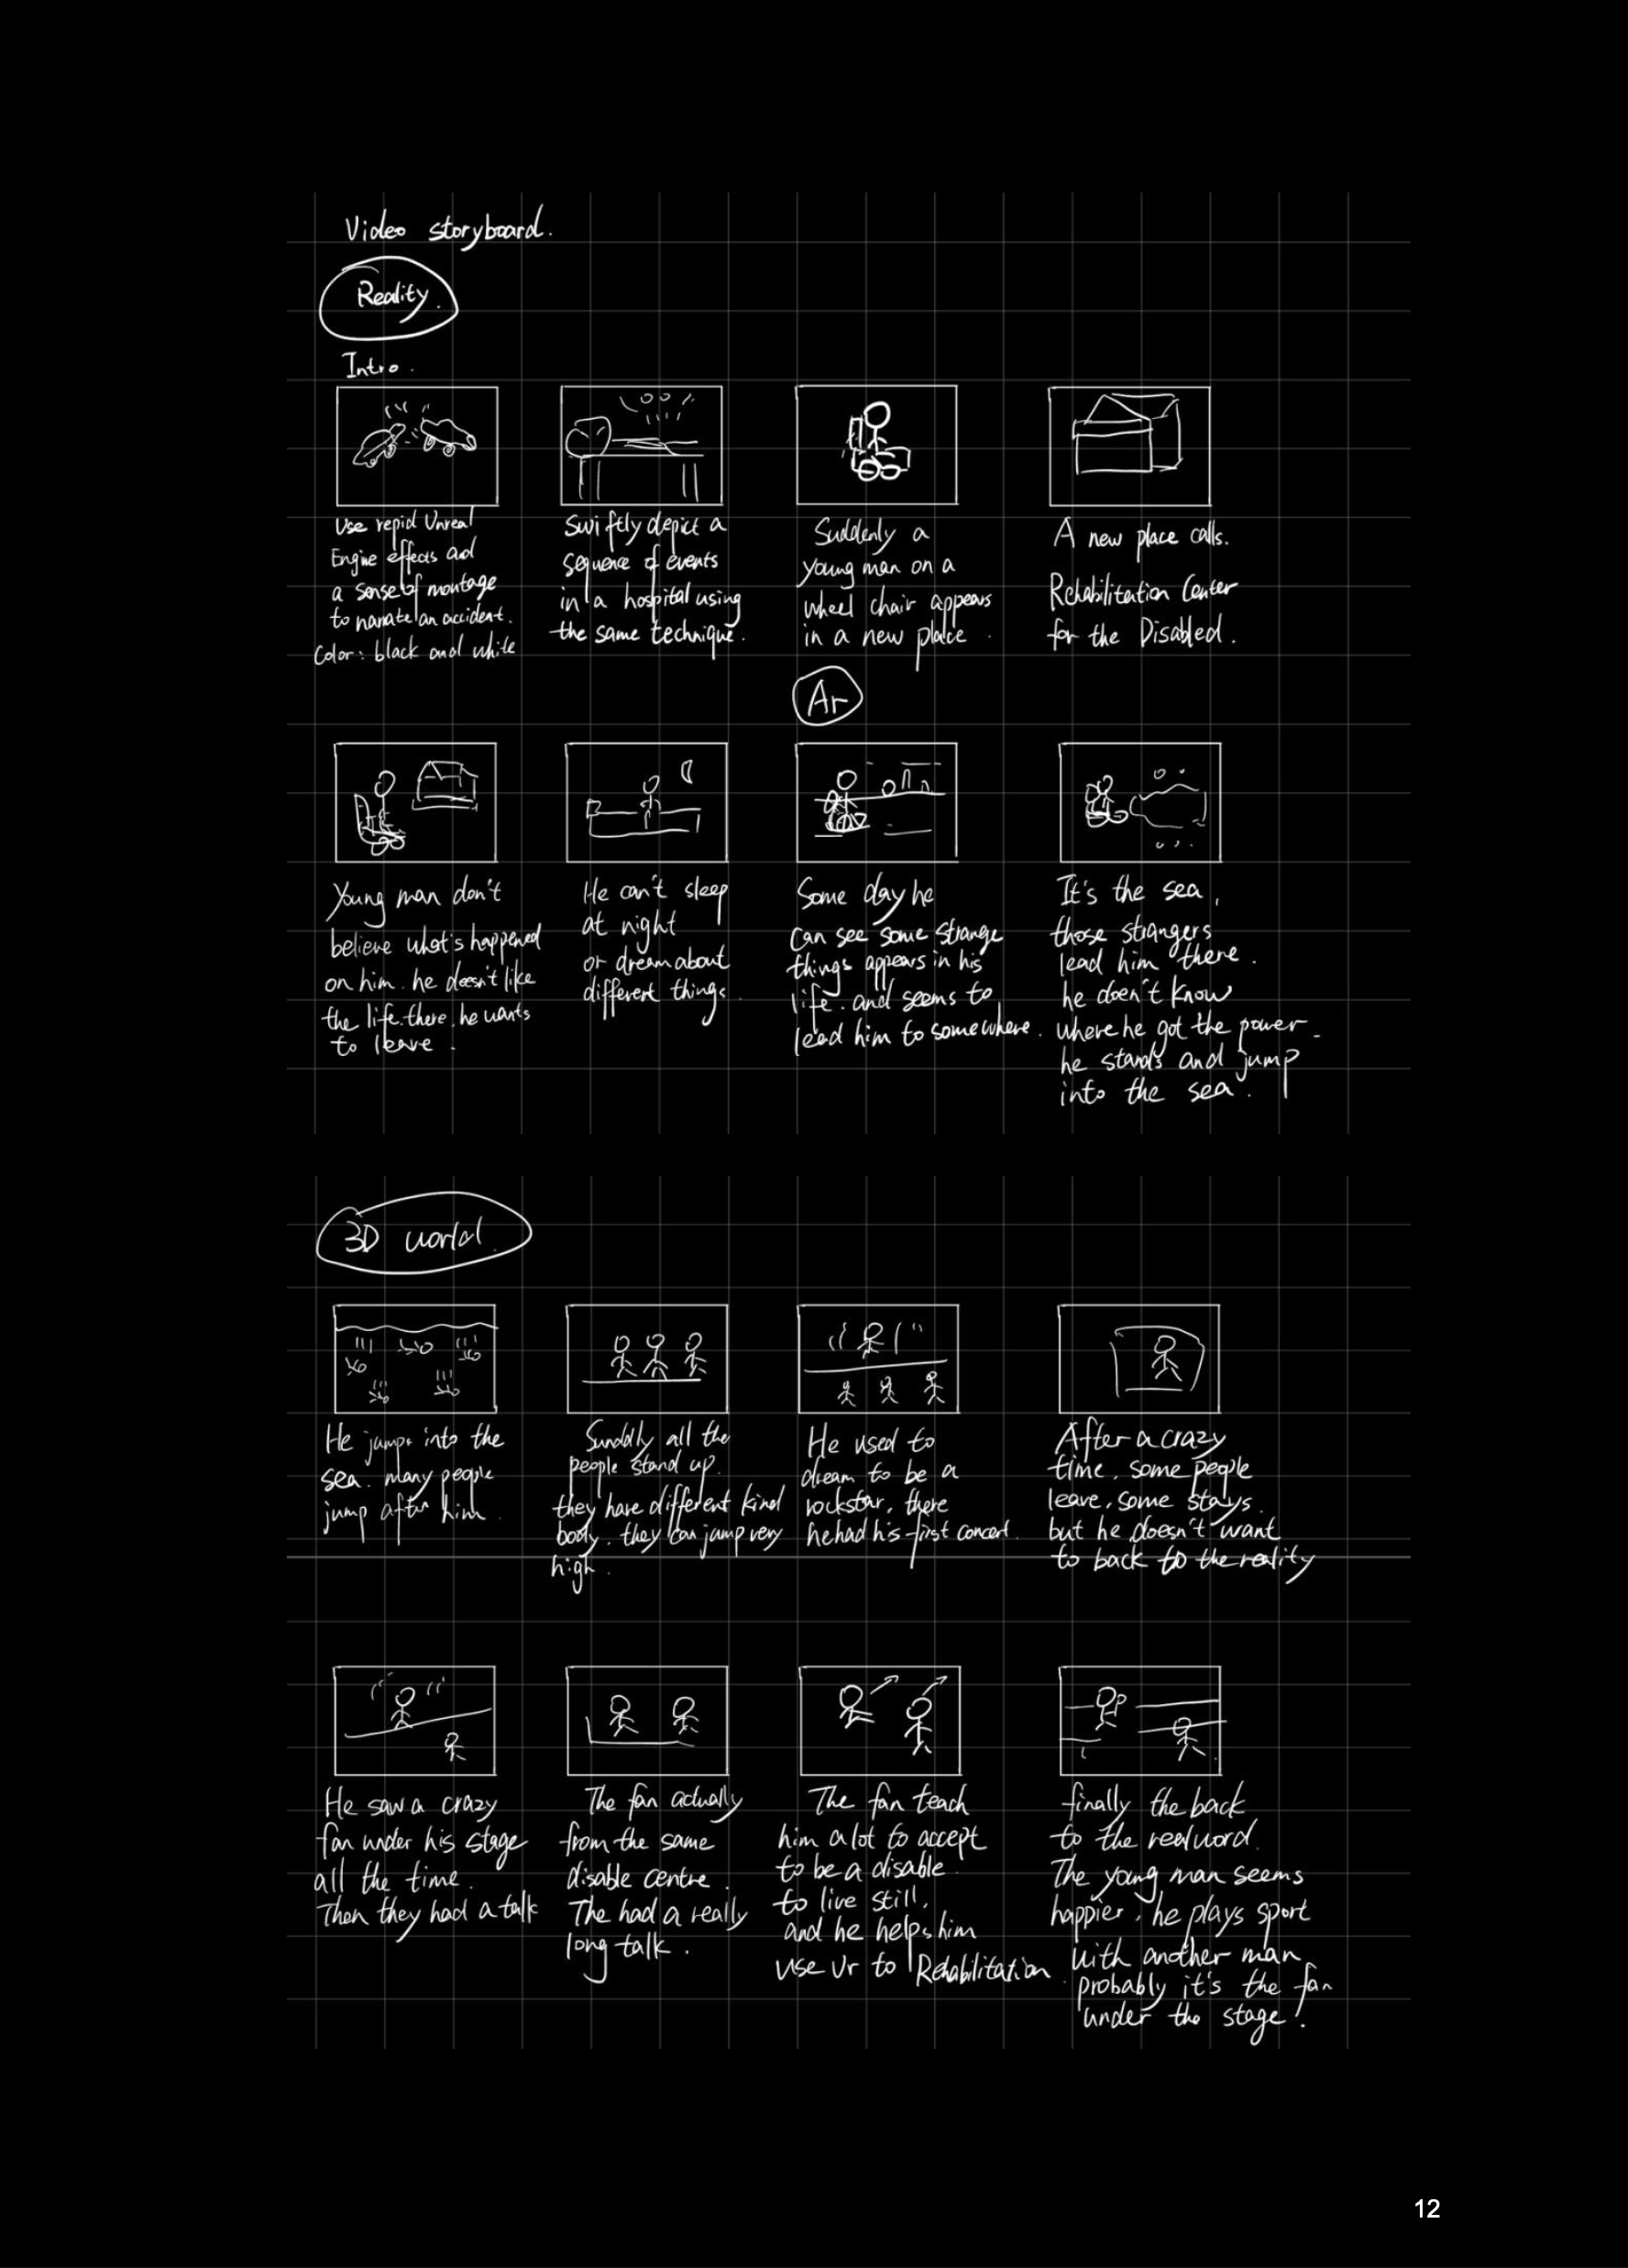 Video storyboard.
Reality.
Intro.
Use repid Unreal
Engine effects and
a sense of montage
to narrate an accident.
Color: black and white
Swiftly depict a
sequence of events
in a hospital using
the same technique.
Suddenly a
young man on a
wheel chair appears
in a new place.
A new place calls.
Rehabilitation Center
for the Disabled.
Young man don't
believe what's happened
on him. he doesn't like
the life there. he wants
to leave.
He can't sleep
at night
or dream about
different things.
Ar
Some day he
can see some strange
things appears in his
life. and seems to
lead him to somewhere.
It's the sea,
those strangers
lead him there.
he doen't know
where he got the power.
he stands and jump
into the sea.
3D world
He jumps into the
sea. many people
jump after him.
Sunddly all the
people stand up.
they have different kind
body. they can jump very
high.
He used to
dream to be a
rockstar, there
he had his first concert.
After a crazy
time, some people
leave, some stays.
but he doesn't want
to back to the reality
He saw a crazy
fan under his stage
all the time.
Then they had a talk
The fan actually
from the same
disable centre.
The had a really
long talk.
The fan teach
him a lot to accept
to be a disable.
to live still,
and he helps him
use Vr to Rehabilitation.
finally the back
to the real word.
The young man seems
happier, he plays sport
with another man,
probably it's the fan
under the stage!
12